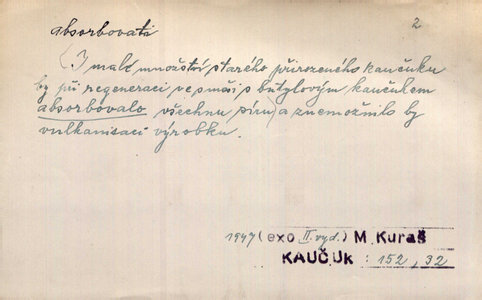 absorbovati
2
(I malé množství starého přirozeného kaučuku
by při regeneraci ve směsi s butylovým kaučukem
absorbovalo všechnu síru) a znemožnilo by
vulkanisaci výrobku.
1947 (exo II. vyd.) M. Kuraš
KAUČUK : 152, 32